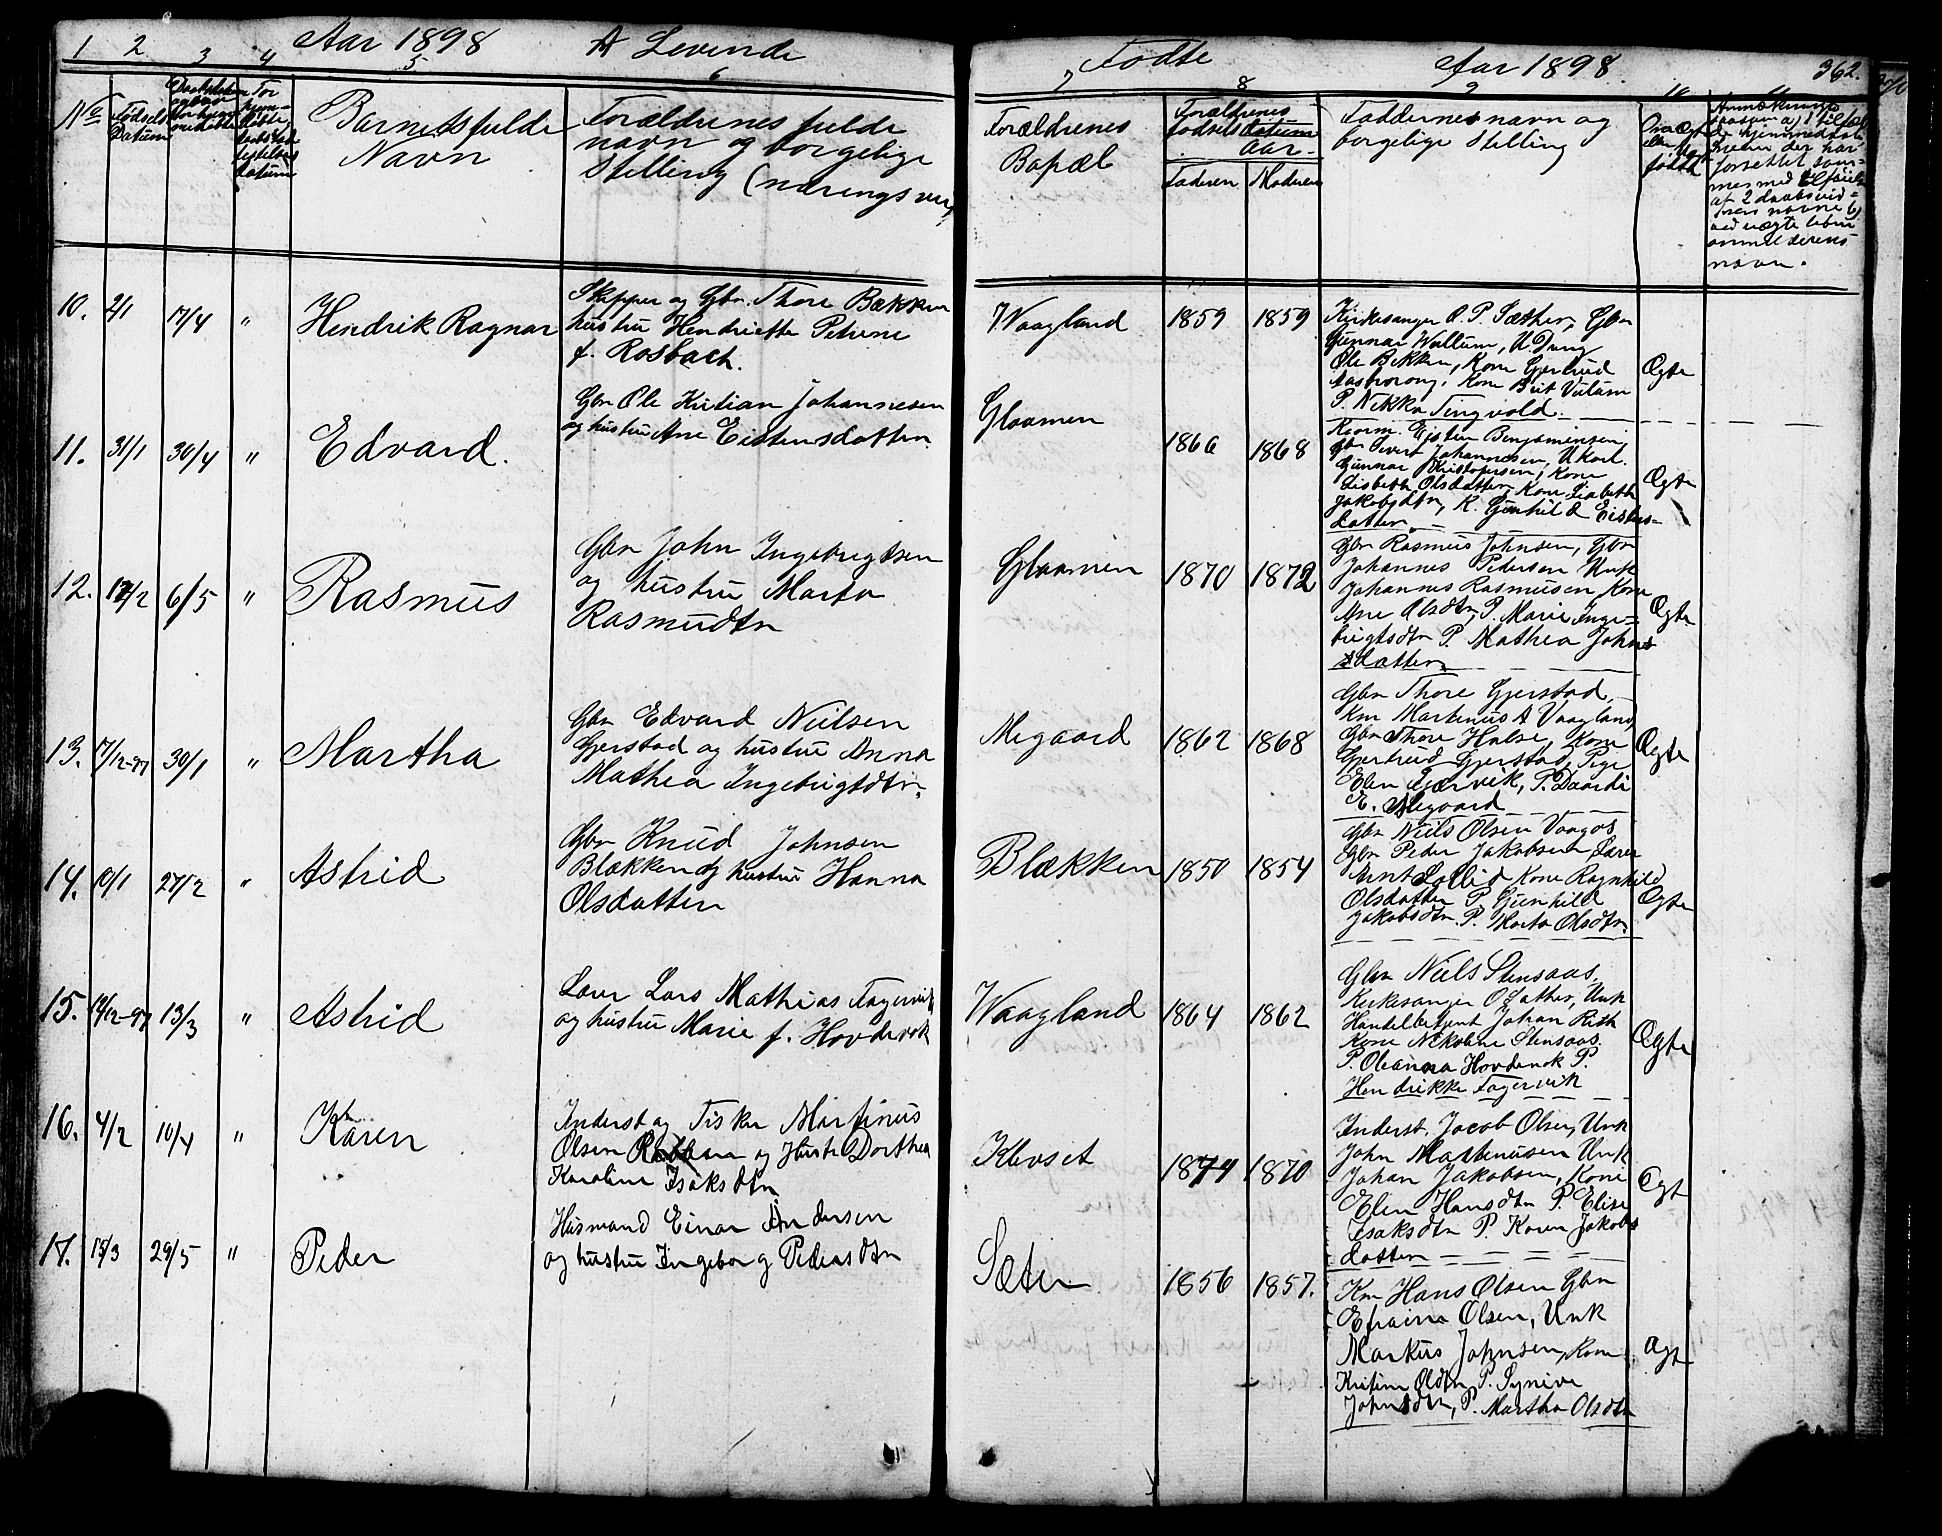 1 2 3 4 Aar 1898 5. A Levende 6
7 Fødte 8 Aar 1898. 9 10 362.
No Fødsels Datum
Barnetsfulde Navn
Forældrenes fulde
navn og borgelige
Stilling (næringsvei)
Forældrenes
Bopæl
Forældrenes
fødselsdatum
aar.
Faderen Moderen
Faddernes navn og
borgelige Stilling
10. 2/1 17/4 " Hendrik Ragnar
Skipper og Gbr. Thore Bækken
hustru Hendriette Petrine
f. Rosbach.
Waagland 1859 1859
Kirkesanger O. P. Sæther, Gbr
Gunnar Wullum, U. Dung
Ole Bekken, Kone Gjertrud
Kone Brit Vulum
P. Nekka Tingvold.
Ægte
11. 31/1 30/4 " Edvard.
Gbr Ole Kristian Johannesen
og hustru Ane Eistensdatter
Glaamen 1866 1868
Eisten Benjaminsen,
Gbr Sivert Johannesen, Ukarl.
Gunnar Kristofersen, Kone
Lisbeth Olsdatter, Kone Lisbeth
Jakobsdtr, K. Gunhild Eistens-
datter
Ægte
12. 12/2 6/5 " Rasmus
Gbr John Ingebrigtsen
og hustru Marta
Rasmusdtr
Glaamen 1870 1872
Gbr Rasmus Johnsen, Gbr
Johannes Pedersen Unk
Johannes Rasmusen, Kone
Ane Olsdtr, P. Marie Inge-
brigtsdtr P. Mathea Johns
datter
Ægte
13. 17/12-97 30/1 " Martha
Gbr Edvard Nilsen
Gjerstad og hustru Anna
Mathea Ingebrigtsdtr.
Megaard 1862 1868
Gbr Thore Gjerstad,
Km Martinus A Vaagland,
Gbr Thore Halse, Kone
Gjertrud Gjerstad, Pige
Elen Leervik, P. Daardi
E. Megaard
Ægte
14. 10/1 27/2 " Astrid
Gbr Knud Johnsen
Blækken og hustru Hanna
Olsdatter
Blækken 1850 1854
Gbr Niels Olsen Vaagos
Gbr Peder Jakobsen Lærer
Arnt Sollid Kone Ragnhild
Olsdatter P. Gunhild
Jakobsdtr. P. Marta Olsdtr.
Ægte
15. 19/12-97 13/3 " Astrid
Lærer Lars Mathias Fagervik
og hustru Marie f. Hovdenak
Waagland 1864 1862
Gbr Niels Stensaas,
Kirkesanger O Sæther, Unk
Handelbetjent Johan Rith
Kone Nikoline Stensaas.
P. Oleanna Hovdenak P.
Hendrikke Fagervik
Ægte
16. 4/2 10/4 " Karen
Inderst og Fisker Martinus
Olsen og Hustr Dorthea
Karoline Isaksdtr
Klevset 1874 1870
Inderst. Jacob Olsen, Unk
John Martinusen Unk
Johan Jakobsen, Kone
Elen Hansdtr P. Elise
Isaksdtr P. Karen Jakobs
datter
Ægt
17. 15/3 29/5 " Peder
Husmand Einar Andersen
og hustru Ingeborg Pedersdtr
Sæter 1856 1857.
Km Hans Olsen Gbr
Efraim Olsen, Unk
Markus Johnsen, Kone
Kristine Olsdtr, P. Synive
Johnsdtr, P. Martha Olsdtr
Ægt